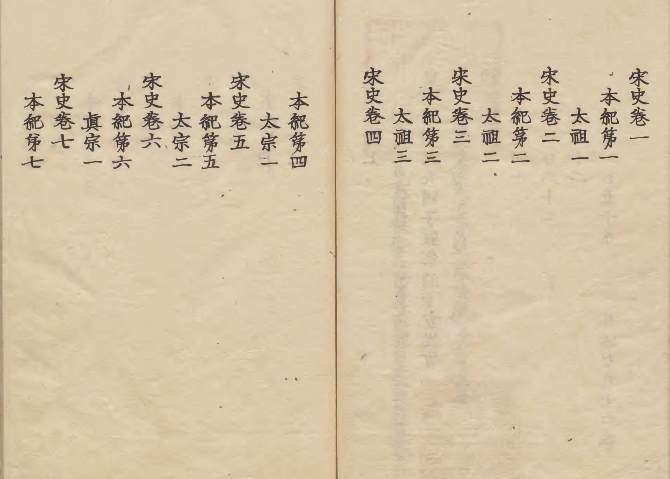 宋史卷一
本紀第一
太祖一
宋史卷二
本紀第二
太祖二
宋史卷三
本紀第三
太祖三
宋史卷四
本紀第四
太宗一
宋史卷五
本紀第五
太宗二
宋史卷六
本紀第六
眞宗一
宋史卷七
本紀第七